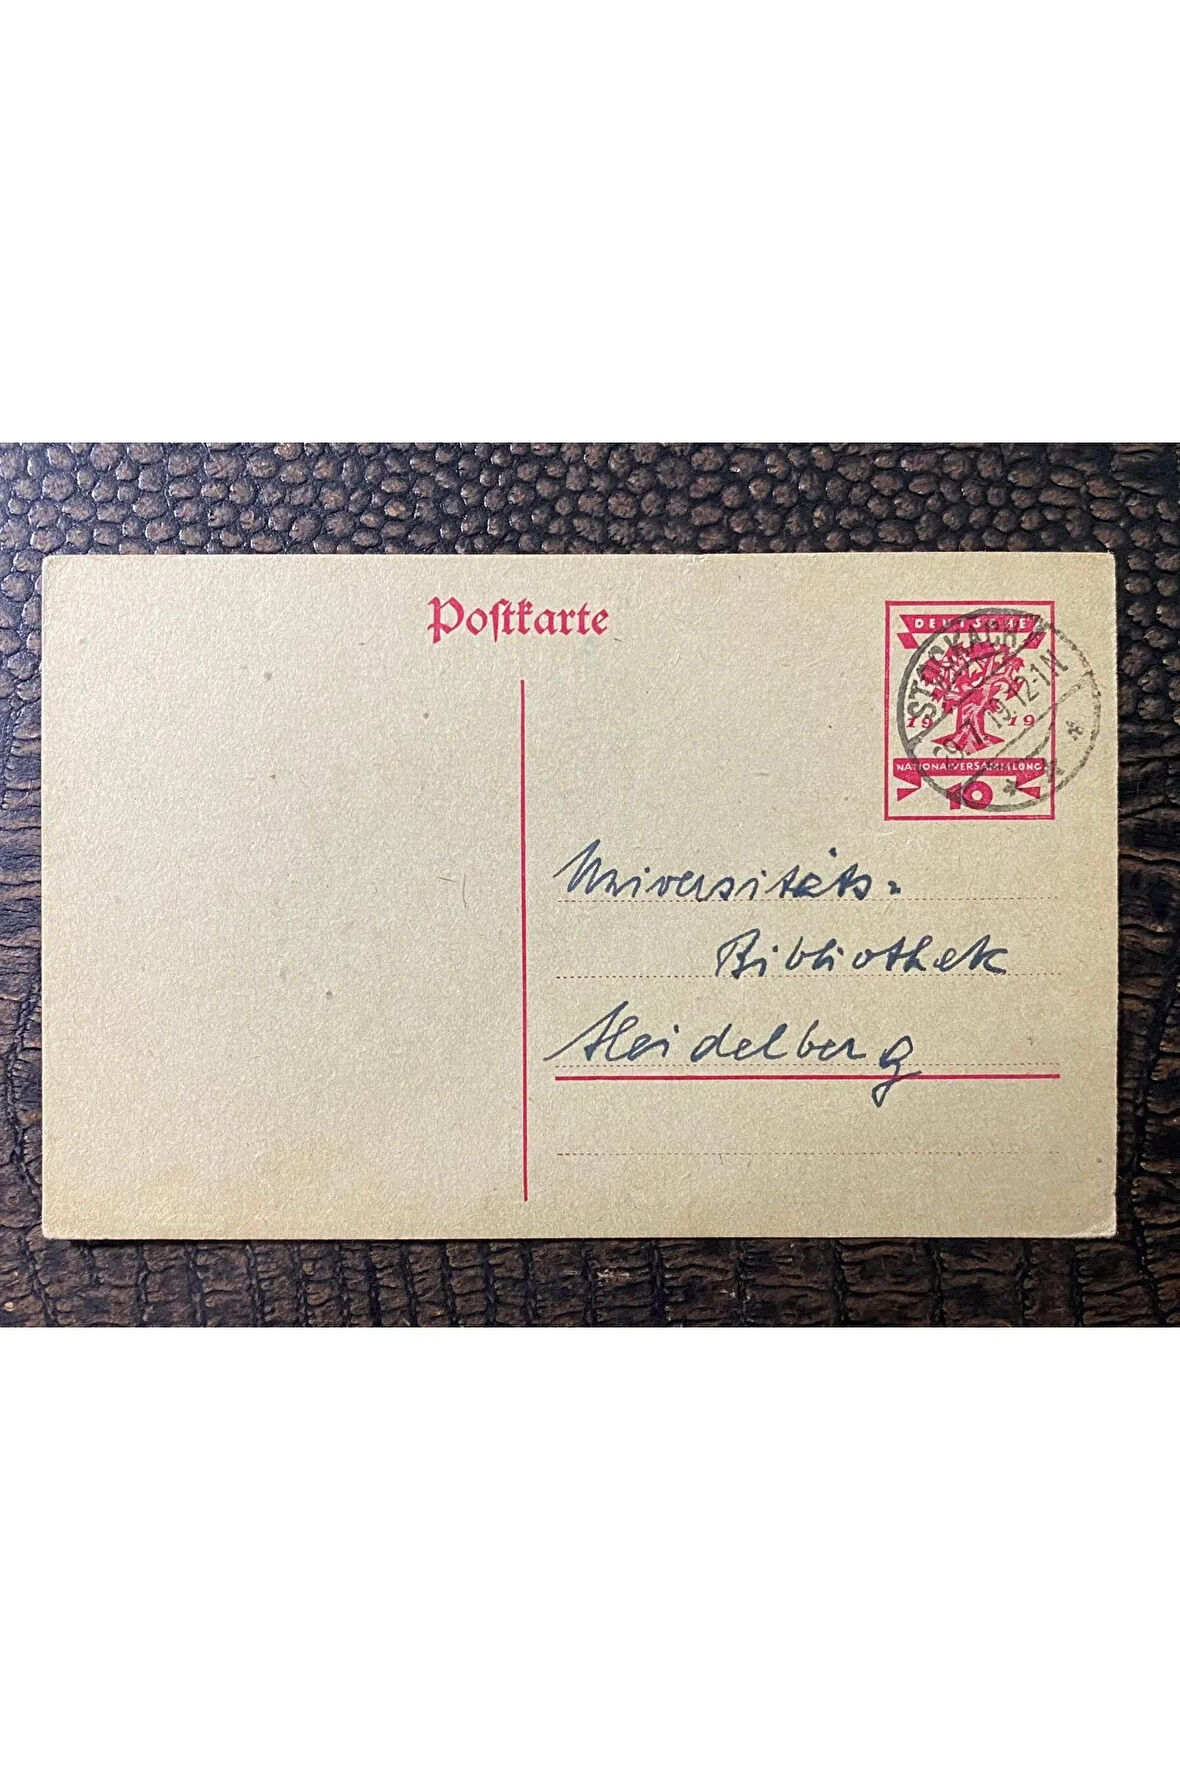 Postkarte
DEUTSCHE
19 19
NATIONALVERSAMMLUNG
10
STOCKACH
29.7.19.12-1N
Universitäts-
Bibliothek
Heidelberg